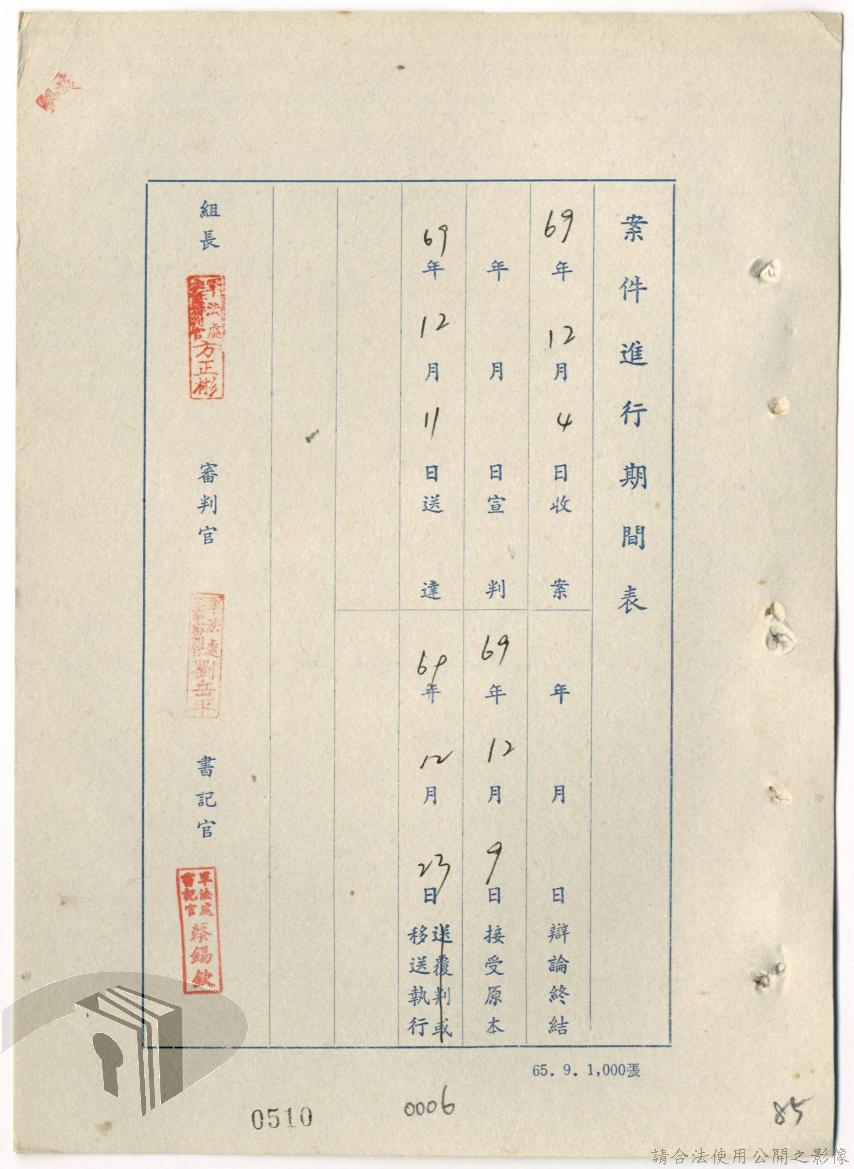 案件進行期間表
69年12月4日收案
年月日辯論終結
年月日宣判
69年12月9日接受原本
69年12月11日送達
69年12月23日送覆判或移送執行
組長
軍法處
方正彬
審判官
軍法處
劉岳平
書記官
軍法處書記官
蔡錫欽
65. 9. 1,000張
0510
0006
85
請合法使用公開之影像